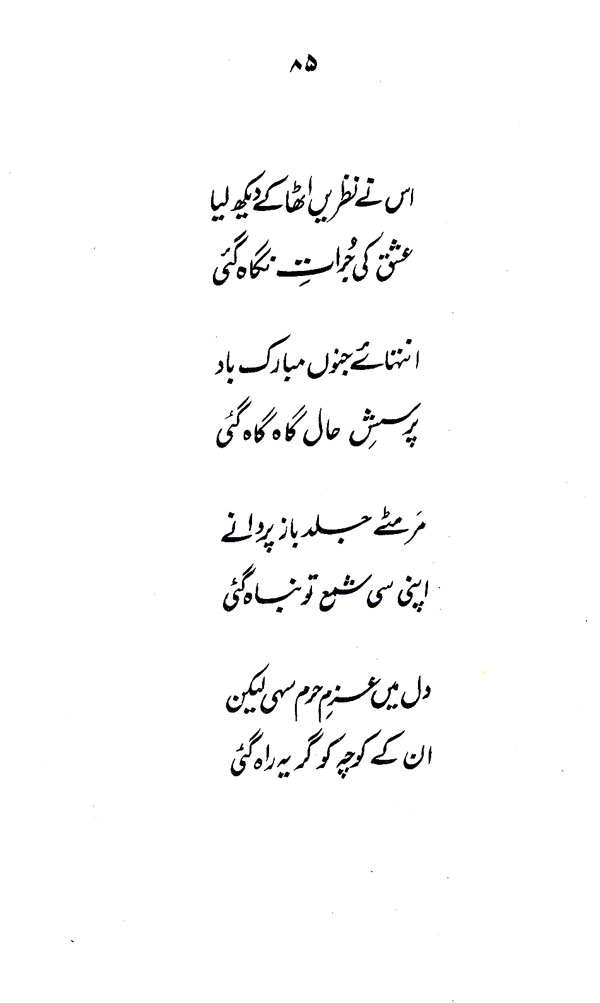 ۸۵
اس نے نظریں اٹھا کے دیکھ لیا
عشق کی جُراتِ نگاہ گئی
انتہائے جنوں مبارک باد
پرسشِ حال گاہ گاہ گئی
مَر مٹے جلد باز پروانے
اپنی سی شمع تو نباہ گئی
دل میں عزمِ حرم سہی لیکن
ان کے کوچہ کو گر یہ راہ گئی